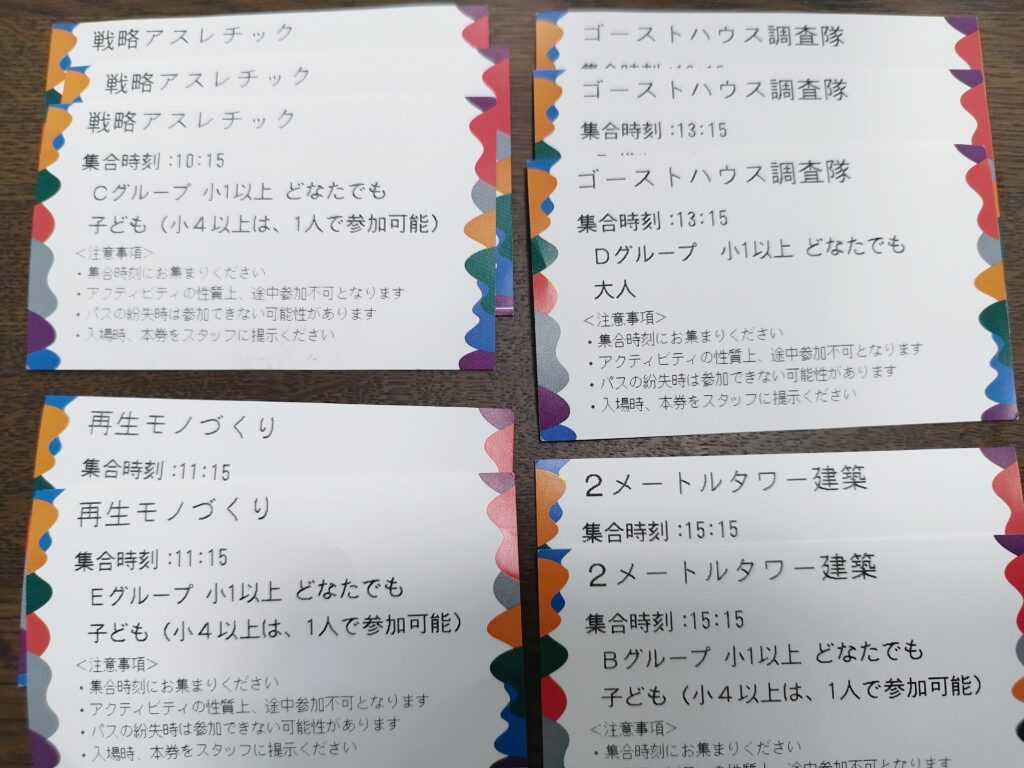 戦略アスレチック
戦略アスレチック
戦略アスレチック
集合時刻:10:15
Cグループ 小1以上 どなたでも
子ども（小４以上は、1人で参加可能）
<注意事項>
・集合時刻にお集まりください
・アクティビティの性質上、途中参加不可となります
・パスの紛失時は参加できない可能性があります
・入場時、本券をスタッフに提示ください
ゴーストハウス調査隊
ゴーストハウス調査隊
集合時刻:13:15
ゴーストハウス調査隊
集合時刻:13:15
Dグループ 小1以上 どなたでも
大人
<注意事項>
・集合時刻にお集まりください
・アクティビティの性質上、途中参加不可となります
・パスの紛失時は参加できない可能性があります
・入場時、本券をスタッフに提示ください
再生モノづくり
集合時刻:11:15
再生モノづくり
集合時刻:11:15
Eグループ 小1以上 どなたでも
子ども（小４以上は、1人で参加可能）
<注意事項>
・集合時刻にお集まりください
・アクティビティの性質上、途中参加不可となります
・パスの紛失時は参加できない可能性があります
・入場時、本券をスタッフに提示ください
２メートルタワー建築
集合時刻:15:15
２メートルタワー建築
集合時刻:15:15
Bグループ 小1以上 どなたでも
子ども（小４以上は、1人で参加可能）
<注意事項>
・集合時刻にお集まりください